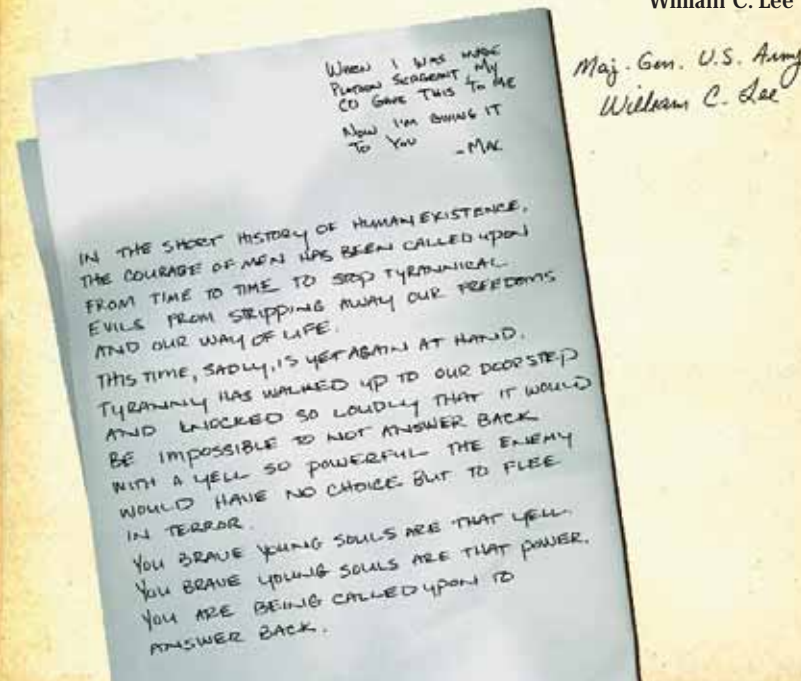 William C. Lee
Maj. Gen. U.S. Army
William C. Lee
WHEN I WAS MADE
PLATOON SERGEANT, MY
CO GAVE THIS TO ME
NOW I'M GIVING IT
TO YOU
-MAC
IN THE SHORT HISTORY OF HUMAN EXISTENCE,
THE COURAGE OF MEN HAS BEEN CALLED UPON
FROM TIME TO TIME TO STOP TYRANNICAL
EVILS FROM STRIPPING AWAY OUR FREEDOMS
AND OUR WAY OF LIFE.
THIS TIME, SADLY, IS YET AGAIN AT HAND.
TYRANNY HAS WALKED UP TO OUR DOORSTEP
AND KNOCKED SO LOUDLY THAT IT WOULD
BE IMPOSSIBLE TO NOT ANSWER BACK
WITH A YELL SO POWERFUL THE ENEMY
WOULD HAVE NO CHOICE BUT TO FLEE
IN TERROR.
YOU BRAVE YOUNG SOULS ARE THAT YELL.
YOU BRAVE YOUNG SOULS ARE THAT POWER.
YOU ARE BEING CALLED UPON TO
ANSWER BACK.